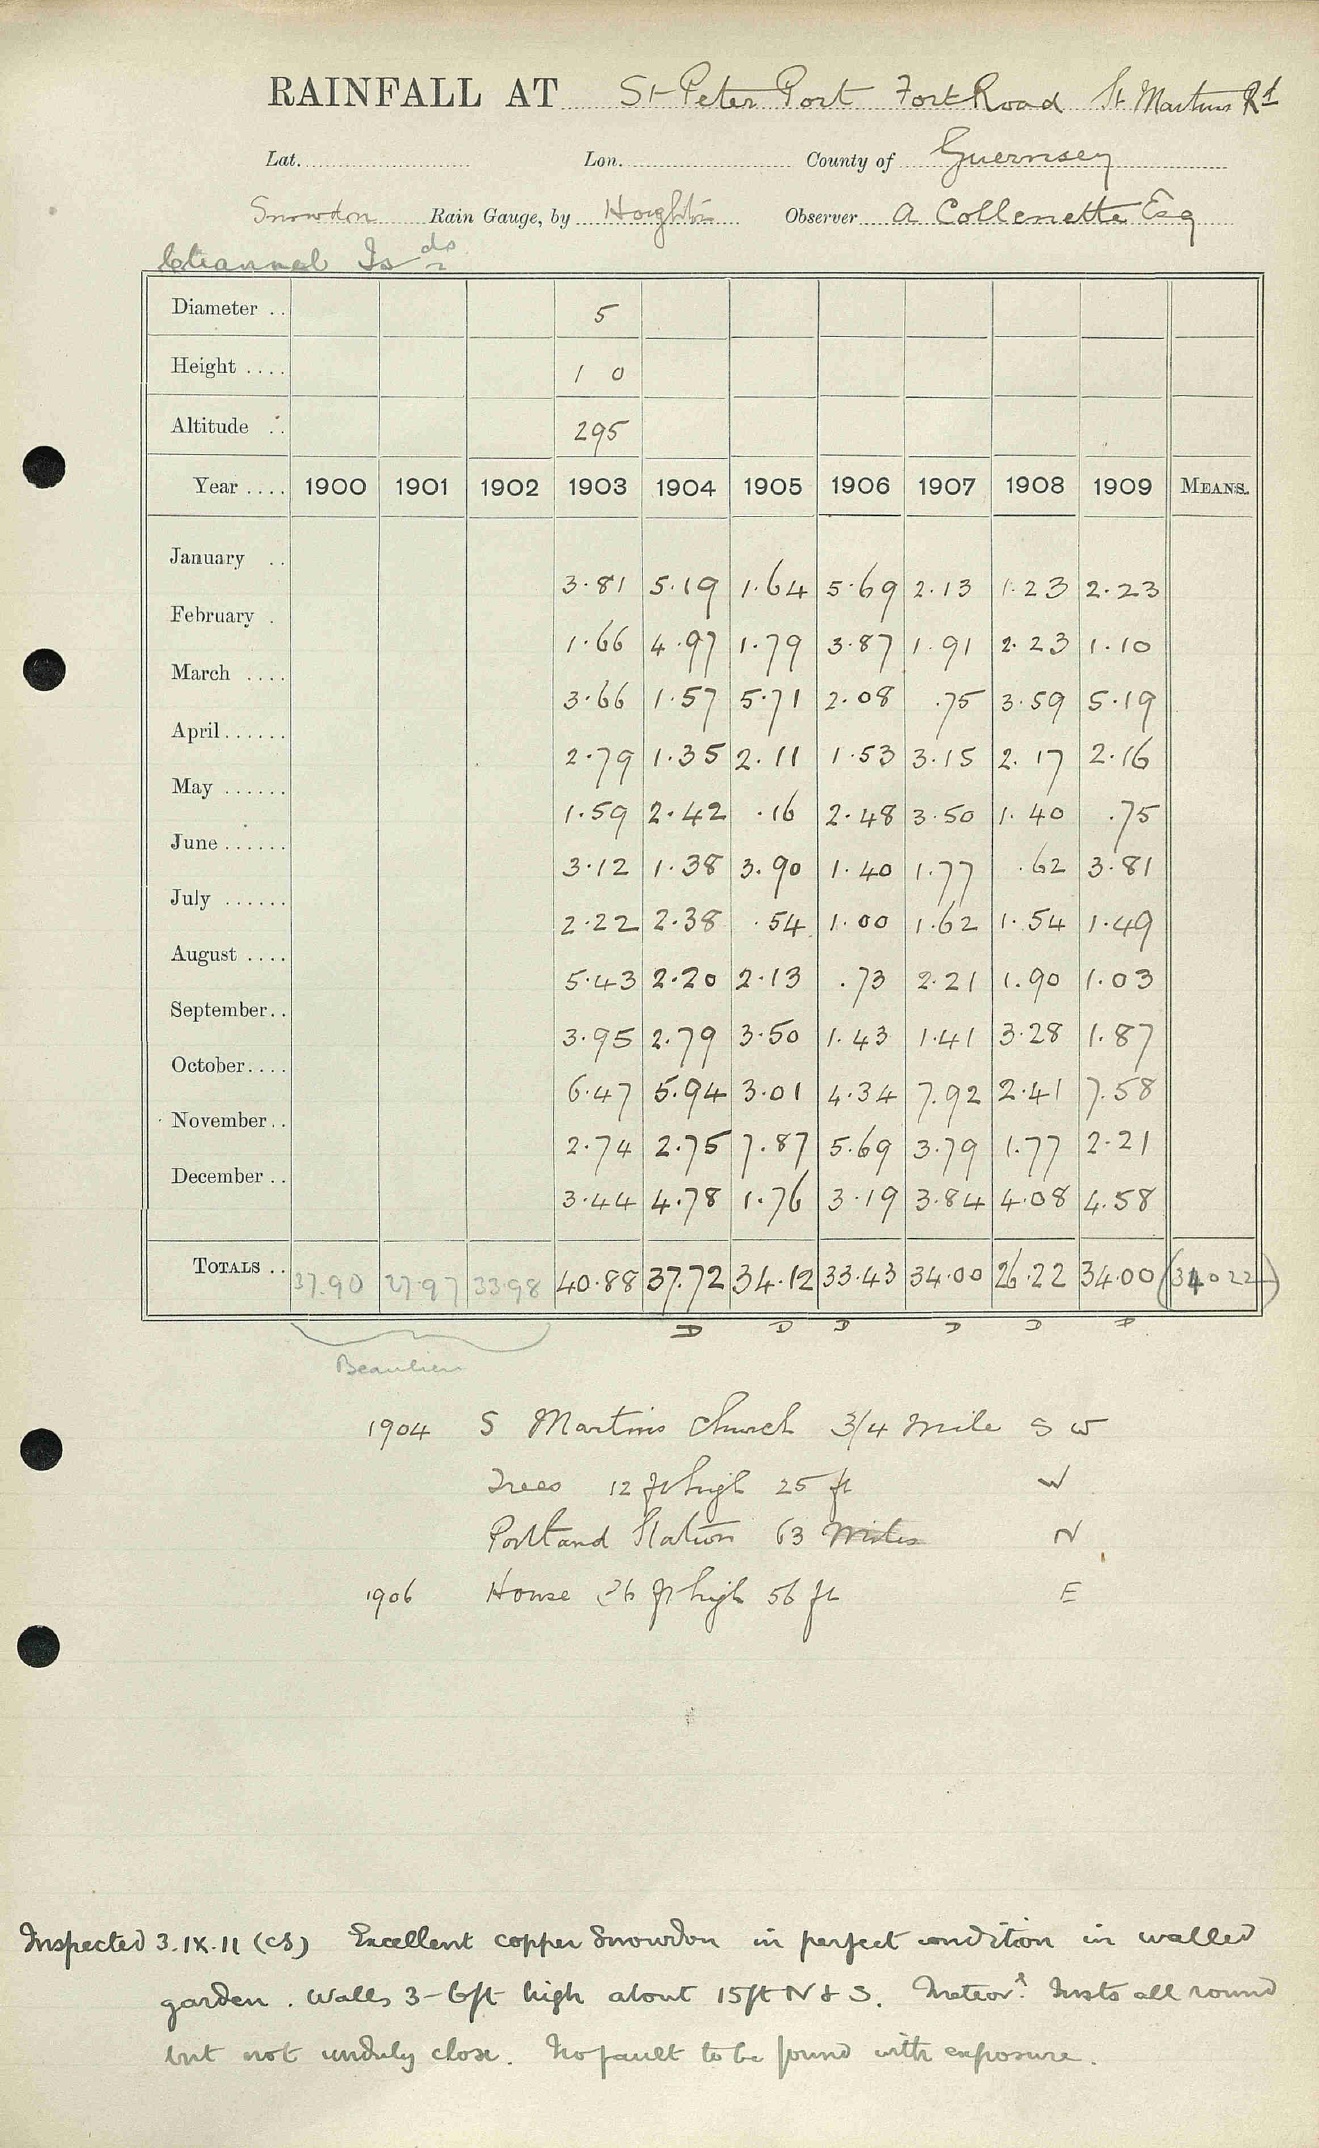 RAINFALL AT St Peter Port Fort Road St Martins Rd
Lat. Lon. County of Guernsey
Snowdon Rain Gauge, by Houghton Observer A Collenette Esq
Channel Isds
Diameter .. 5
Height .... 1 0
Altitude .. 295
Year .... 1900 1901 1902 1903 1904 1905 1906 1907 1908 1909 MEANS.
January .. 3.81 5.19 1.64 5.69 2.13 1.23 2.23
February . 1.66 4.97 1.79 3.87 1.91 2.23 1.10
March .... 3.66 1.57 5.71 2.08 .75 3.59 5.19
April ...... 2.79 1.35 2.11 1.53 3.15 2.17 2.16
May ...... 1.59 2.42 .16 2.48 3.50 1.40 .75
June ...... 3.12 1.38 3.90 1.40 1.77 .62 3.81
July ...... 2.22 2.38 .54 1.00 1.62 1.54 1.49
August .... 5.43 2.20 2.13 .73 2.21 1.90 1.03
September.. 3.95 2.79 3.50 1.43 1.41 3.28 1.87
October.... 6.47 5.94 3.01 4.34 7.92 2.41 7.58
November.. 2.74 2.75 7.87 5.69 3.79 1.77 2.21
December .. 3.44 4.78 1.76 3.19 3.84 4.08 4.58
TOTALS .. 37.90 27.97 33.98 40.88 37.72 34.12 33.43 34.00 26.22 34.00 (34022)
D D D D D D
Beaulieu
1904 S Martins Church 3/4 Mile S W
Trees 12 ft high 25 ft W
Portland Station 63 Miles N
1906 House 26 ft high 56 ft E
Inspected 3.IX.11 (CS) Excellent copper Snowdon in perfect condition in walled
garden. Walls 3-6ft high about 15ft N & S. Meteorl. Insts all round
but not unduly close. No fault to be found with exposure.